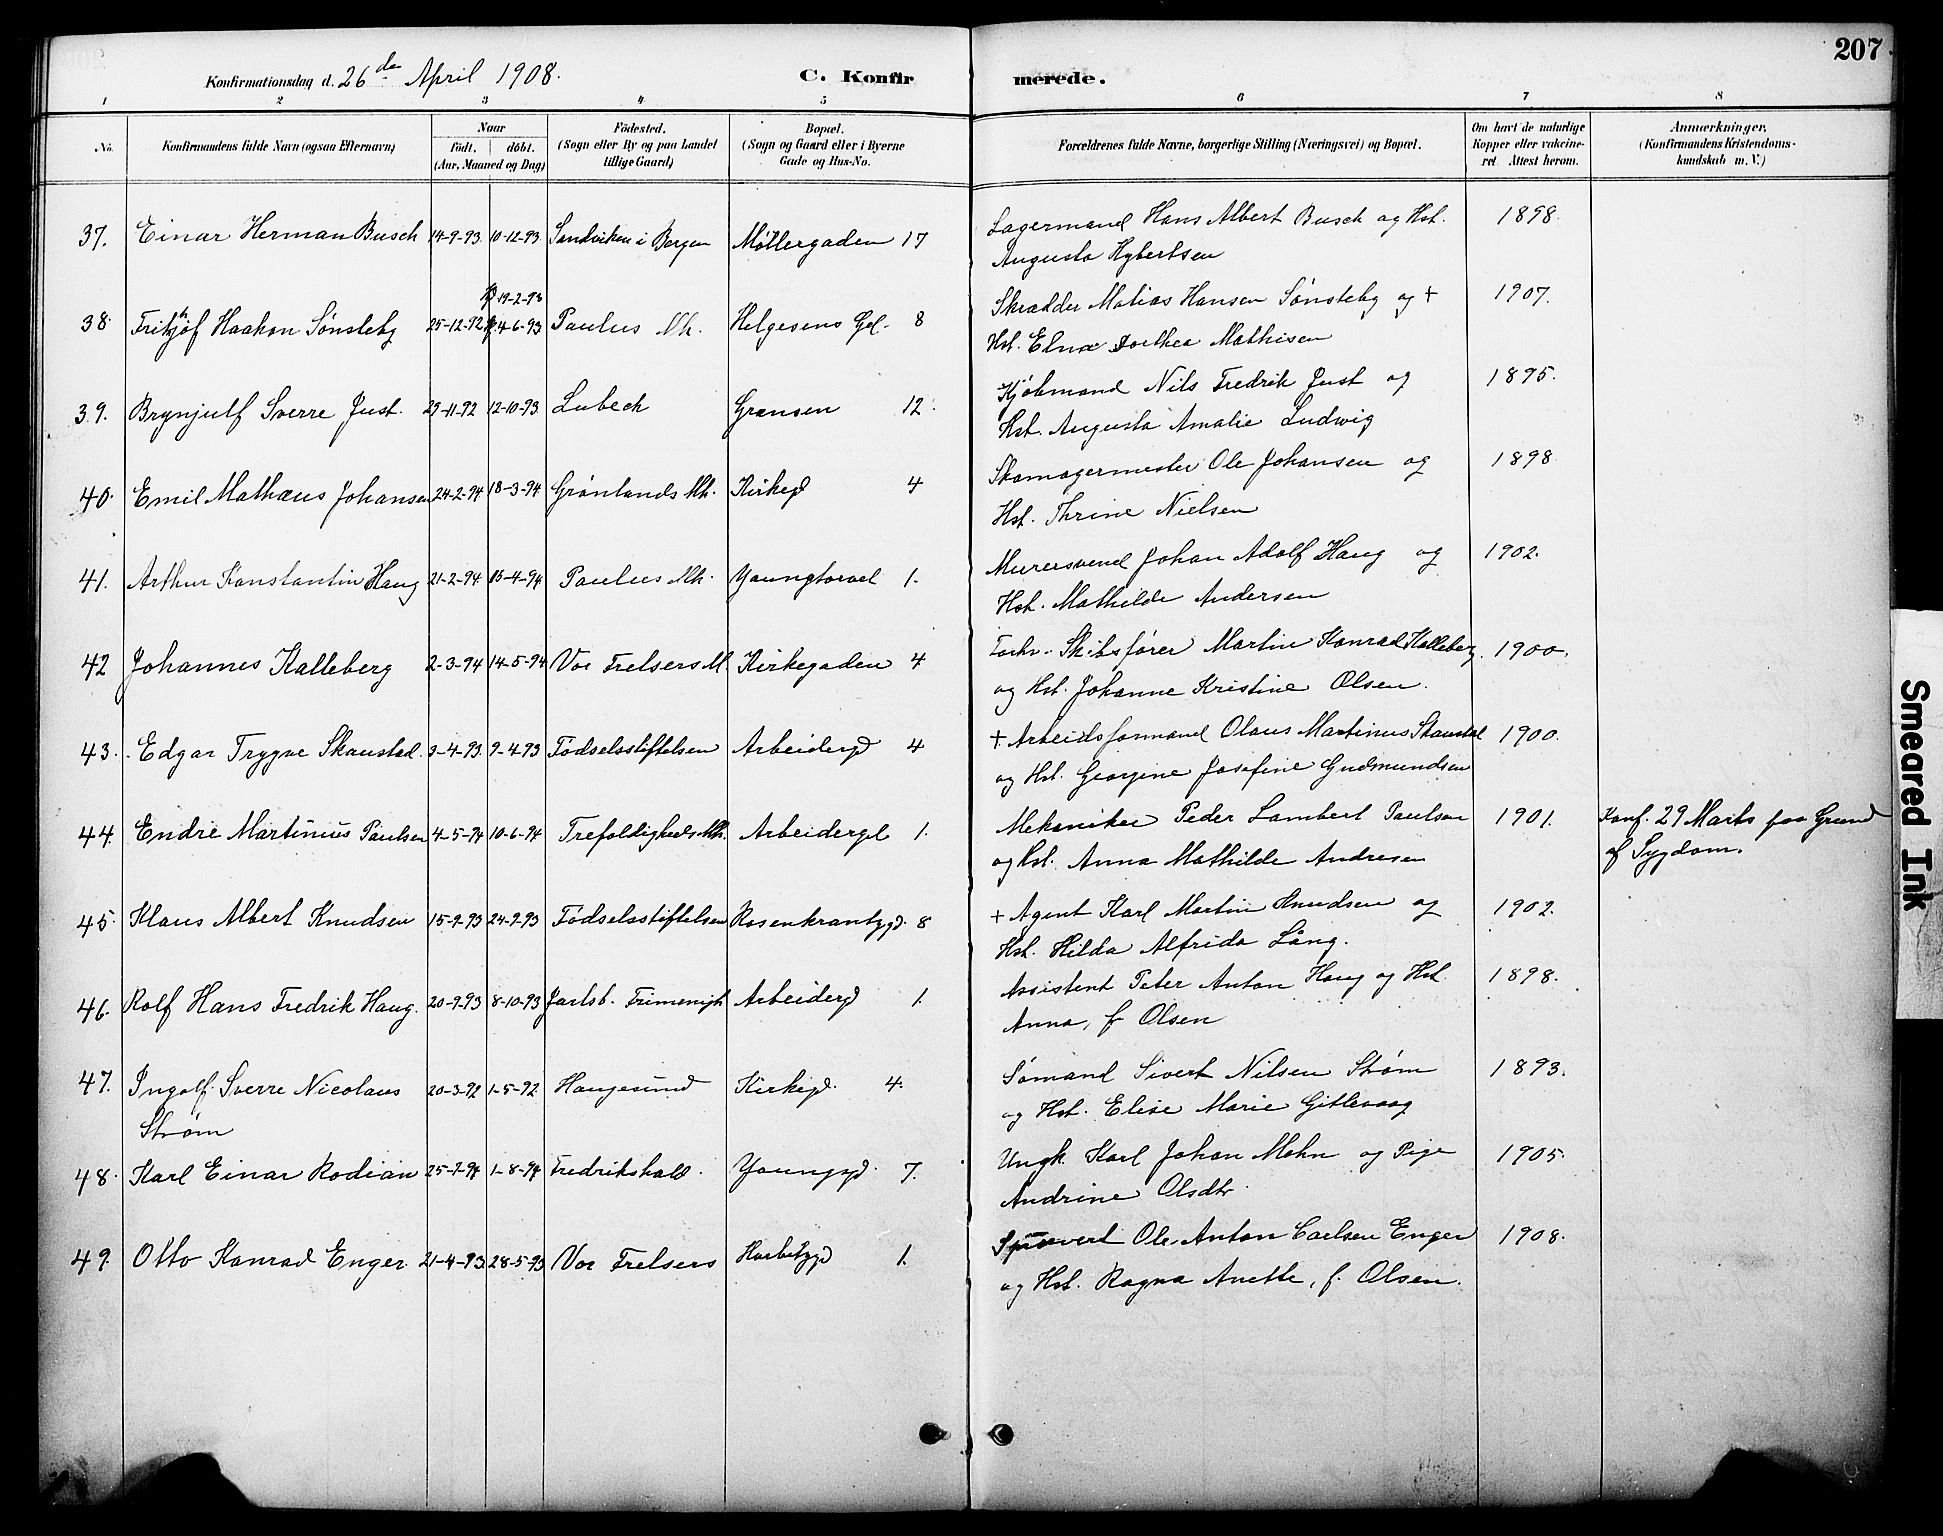 207
Konfirmationsdag d. 26de April 1908.
C. Konfirmerede.
1 2 3 4 5 6 7 8
No. Konfirmandens fulde Navn (ogsaa Efternavn) Naar födt. döbt. (Aar, Maaned og Dag) Födested. (Sogn eller By og paa Landet tillige Gaard) Bopæl. (Sogn og Gaard eller i Byerne Gade og Hus-No. Forældrenes fulde Navne, borgerlige Stilling (Næringsvei) og Bopæl. Om havt de naturlige Kopper eller vakcineret. Attest herom. Anmærkninger. (Konfirmandens Kristendomskundskab m. V.)
37. Einar Herman Busch 14-9-93 10-12-93 Sandviken i Bergen Møllergaden 17 Lagermand Hans Albert Busch og Hst. 1898.
Augusta Hybertsen
38. Frithjof Haakon Sønsteby 25-12-92 19-2-93 4-6-93 Paulus Mh. Helgesens Gd. 8 Skrædder Matias Hansen Sønsteby og + 1907.
Hst. Elna Dorthea Mathisen
39. Brynjulf Sverre Just. 29-11-92 12-10-93 Lubeck Grænsen 12. Kjøbmand Nils Fredrik Just og 1895.
Hst. Augusta Amalie Ludwig
40. Emil Mathæus Johansen 24-2-94 18-3-94 Grønlands Mh. Kirkegd 4 Skomagermester Ole Johansen og 1898
Hst. Thrine Nielsen
41. Arthur Konstantin Haug 21-2-94 15-4-94 Paulus Mh. Youngtorvet 1. Murersvend Johan Adolf Haug og 1902.
Hst. Mathilde Andersen
42 Johannes Kalleberg 2-3-94 14-5-94 Vor Frelsers M. Kirkegaden 4 Forhv. Skibsfører Martin Konrad Kalleberg 1900.
og Hst. Johanne Kristine Olsen.
43. Edgar Trygve Skaustad. 3-4-93 9-4-93 Fødselsstiftelsen Arbeidergd 4 + Arbeidsformand Olaus Martinus Skaustad 1900.
og Hst. Georgine Josefine Gudmundsen
44. Endre Martinius Paulsen 4-5-94 10-6-94 Trefoldigheds Mh. Arbeidergd 1. Mekaniker Peder Lambert Paulsen 1901. Konf. 29 Marts paa Grund
og Hst. Anna Mathilde Andresen af Sygdom.
45. Klaus Albert Knudsen 15-9-93 24-9-93 Fødselsstiftelsen Rosenkrantzgd. 8 + Agent Karl Martin Knudsen og 1902.
Hst. Hilda Alfrida Lång.
46. Rolf Hans Fredrik Haug. 20-9-93 8-10-93 Jarlsb. Frimenigh. Arbeidergd 1. Assistent Peter Anton Haug og Hst. 1898.
Anna, f. Olsen
47. Ingolf Sverre Nicolaus 20-3-92 1-5-92 Haugesund Kirkegd. 4. Sømand Sivert Nilsen Strøm 1893.
Strøm og Hst. Elise Marie Gitlevaag
48. Karl Einar Rodian 25-7-94 1-8-94 Fredrikshald. Youngsgd. 7. Ungk. Karl Johan Mohn og Pige 1905.
Andrine Olsdtr.
49. Otto Konrad Enger. 21-4-93 28-5-93 Vor Frelsers 1. Ole Anton Carlsen Enger 1908.
og Hst. Ragna Anette, f. Olsen.
Smeared Ink